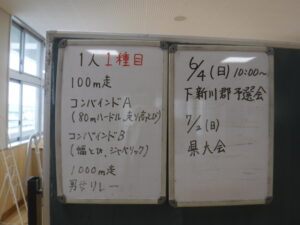 1人1種目
100m走
コンバインドA
(80mハードル、走り高とび)
コンバインドB
(幅とび、ジャベリック)
1000m走
男女リレー
6/4(日)10:00〜
下新川郡予選会
7/2(日)
県大会